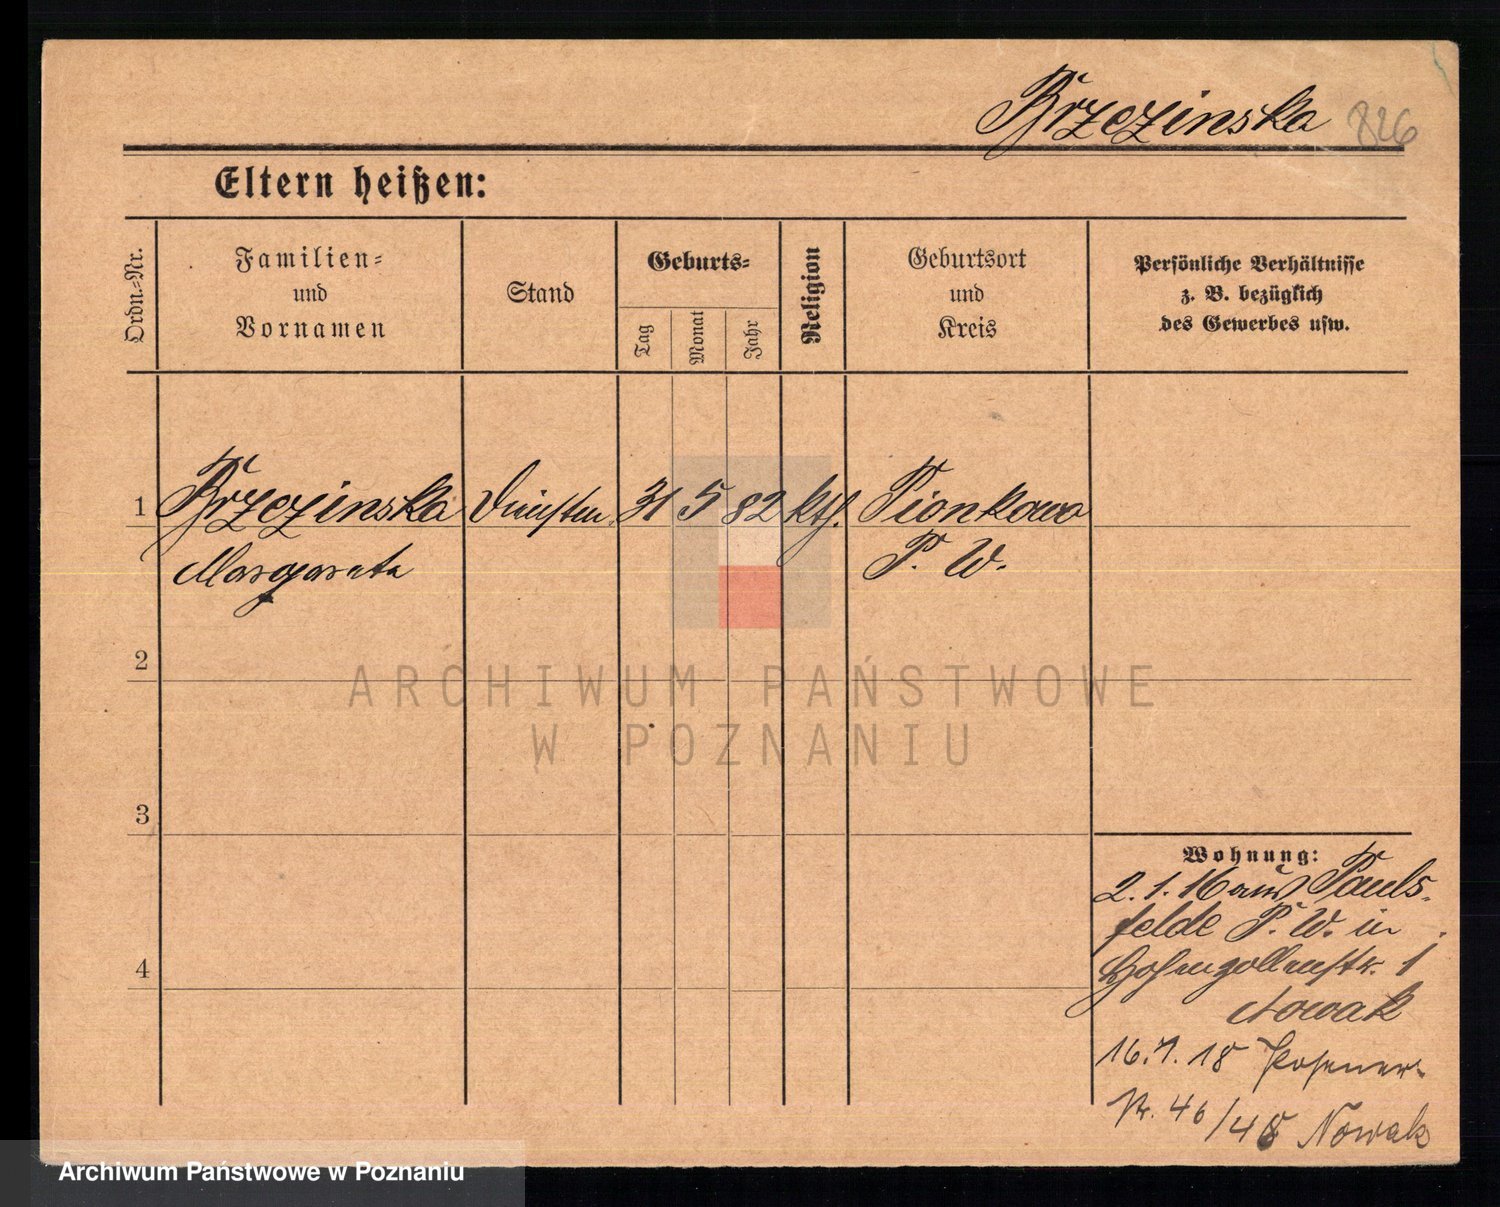 Brzezinska 826
Eltern heißen:
Ordn.-Nr.
Familien-
und
Vornamen
Stand
Geburts-
Tag
Monat
Jahr
Religion
Geburtsort
und
Kreis
Persönliche Verhältnisse
z. B. bezüglich
des Gewerbes usw.
1 Brzezinska 31 5 82 kth. Pionkowo
Margareta P. W.
2
3
4
Wohnung:
2. 1. 16 aus Pauls-
felde P. W. in
Hohenzollernstr. 1
Nowak
16. 7. 18 Posener-
str. 46/48 Nowak
ARCHIWUM PAŃSTWOWE
W POZNANIU
Archiwum Państwowe w Poznaniu